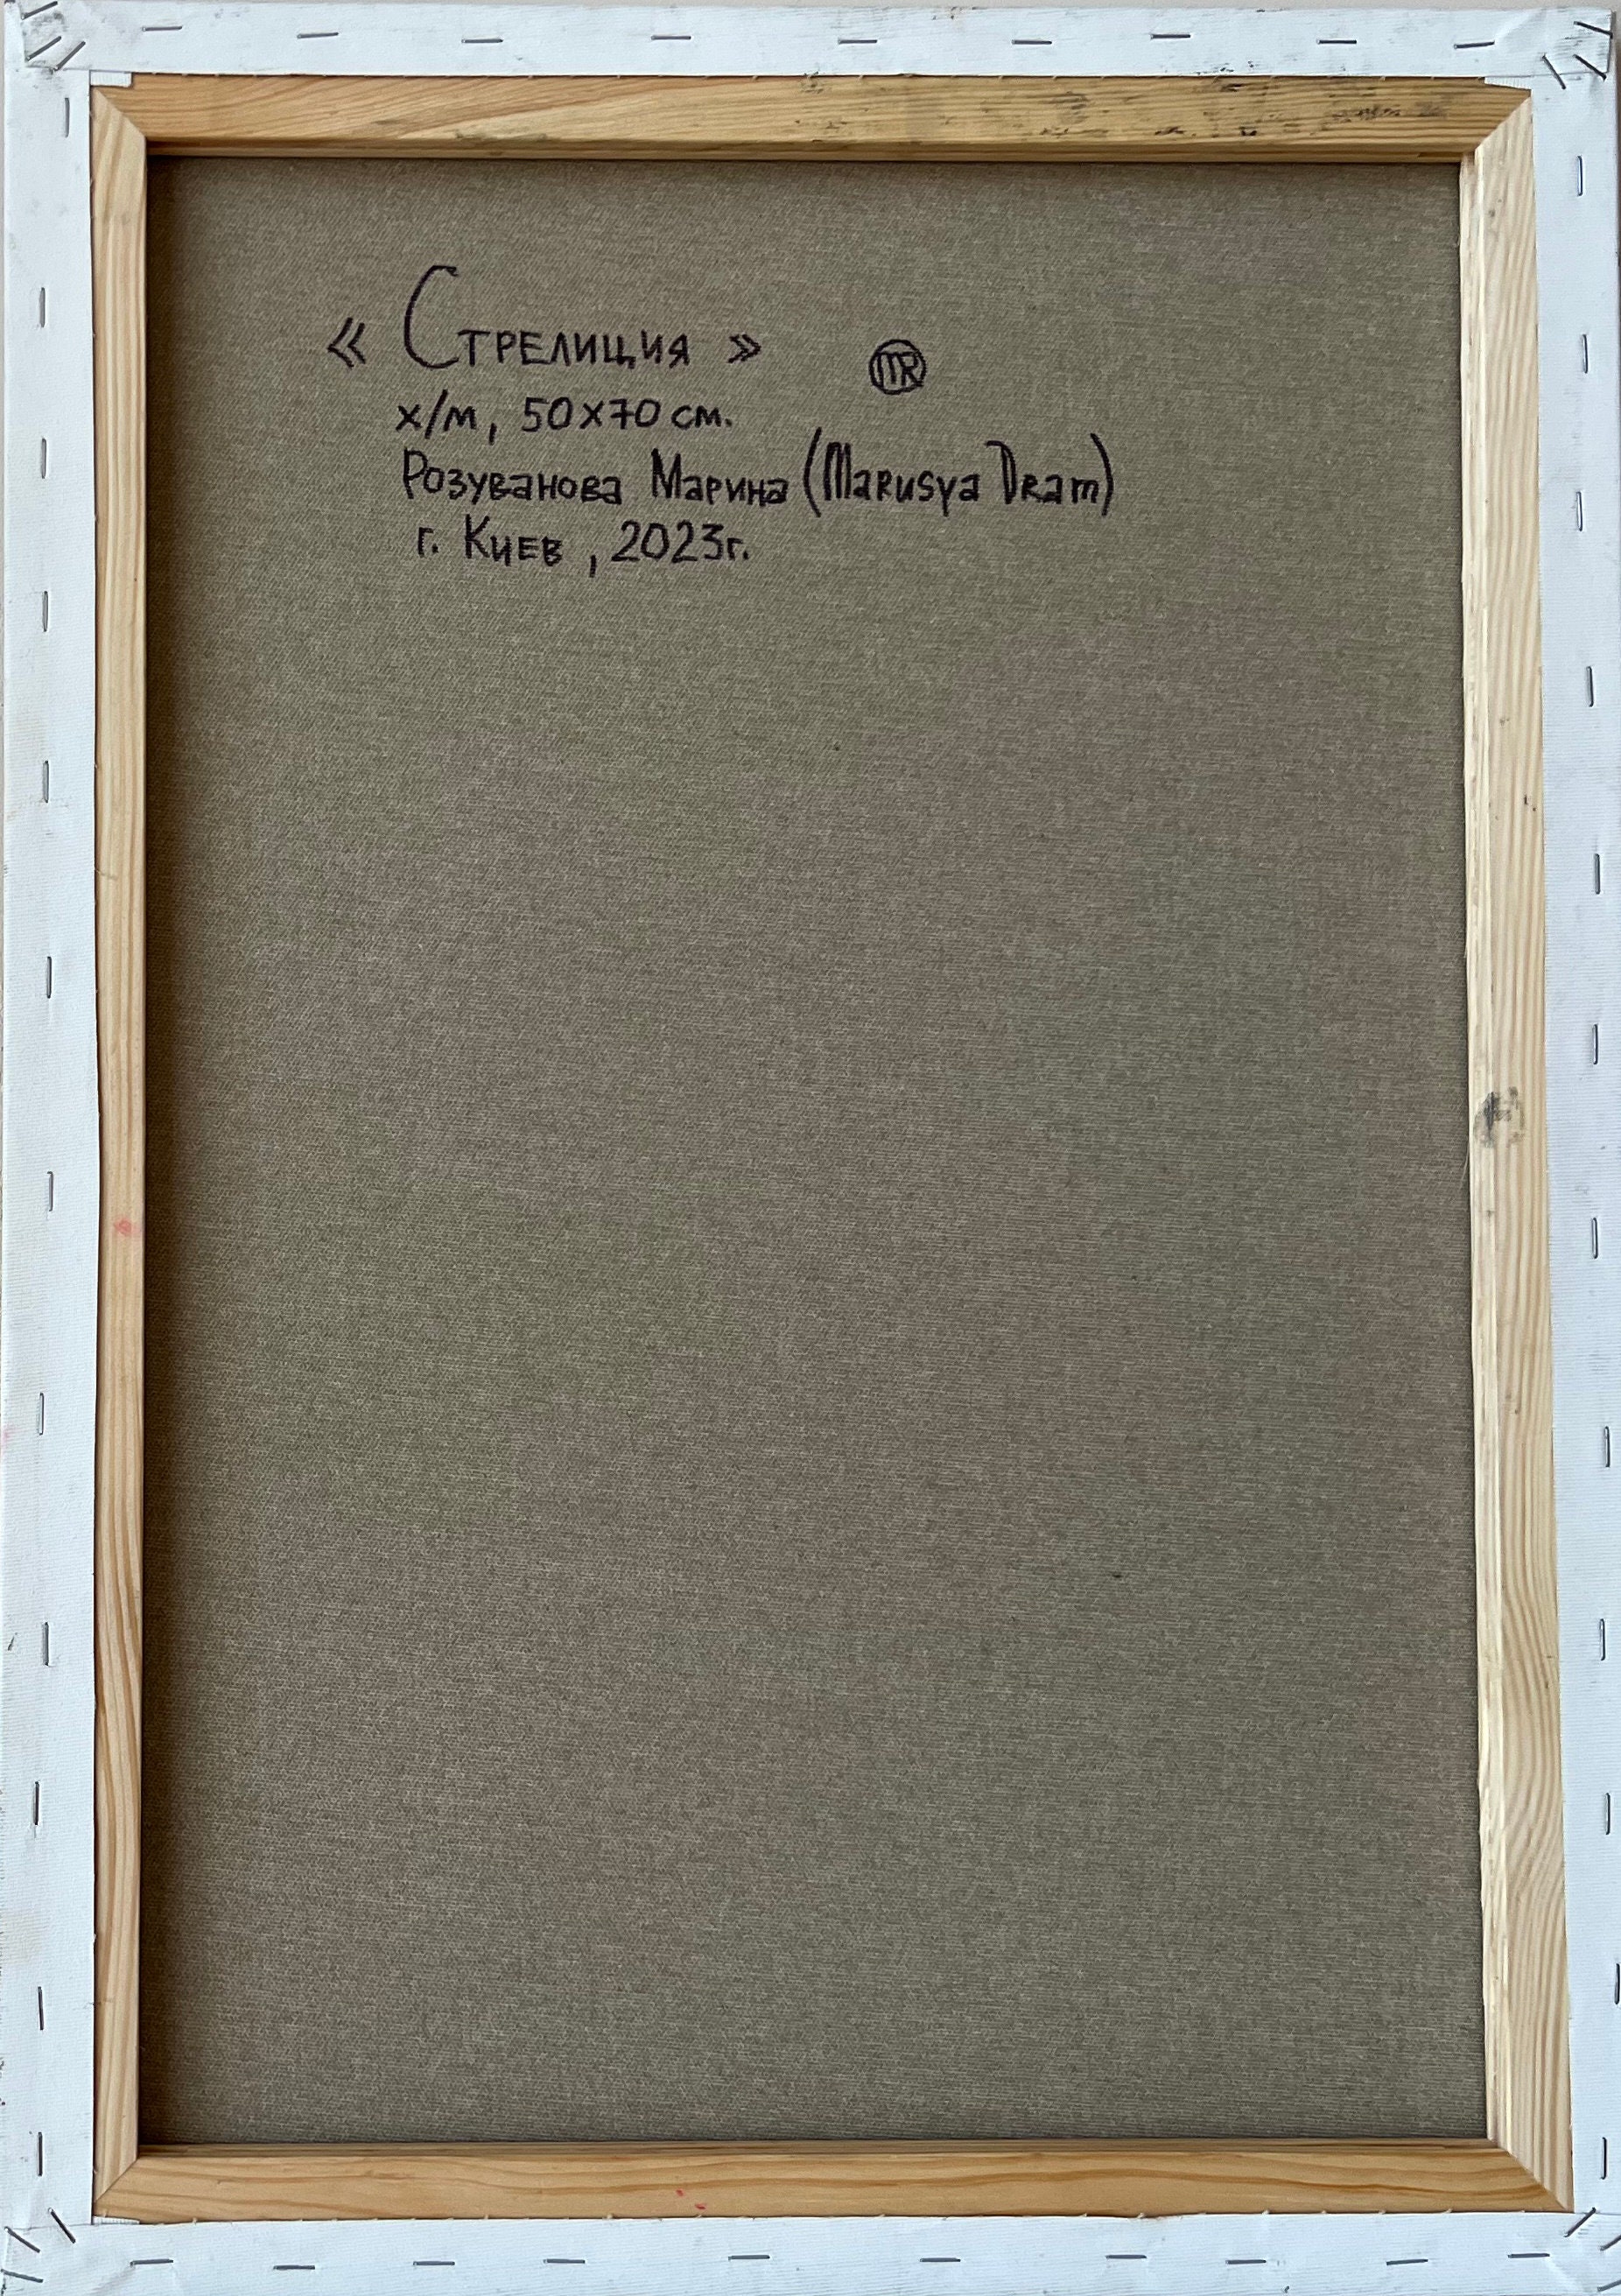 « Стрелиция » MR
х/м, 50х70 см.
Розуванова Марина (Marusya Dram)
г. Киев , 2023г.